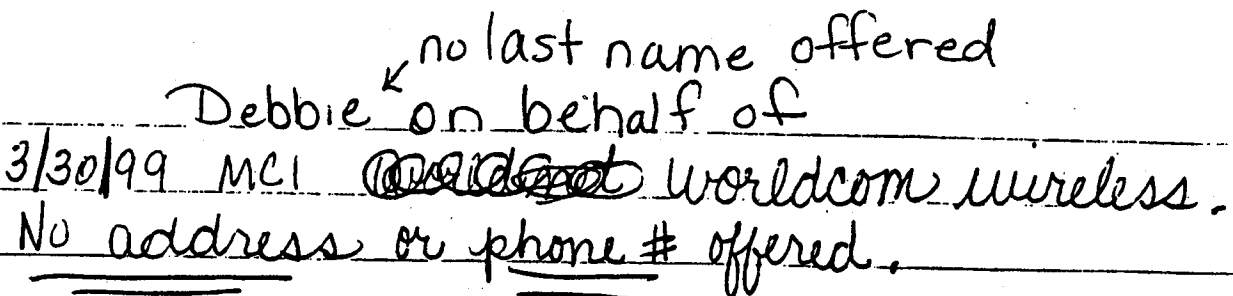 no last name offered
Debbie on behalf of
3/30/99 MCI worldcom wireless.
No address or phone # offered.